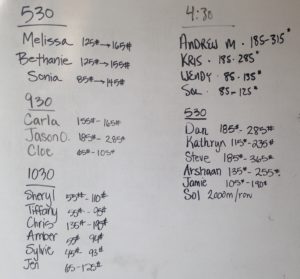 530
Melissa 125# → 165#
Bethanie 125# → 155#
Sonia 85# → 145#
930
Carla 155# - 165#
Jason O. 185# - 285#
Cloe 65# - 105#
1030
Sheryl 55# - 110#
Tiffany 55# - 95#
Chris 135# - 195#
Amber 55# 94#
Sylvie 45# 93#
Jen 65 - 125#
4:30
ANDREW M . 185-315#
KRIS . 185-285#
WENDY . 85-135#
SOL . 85-125#
530
Dan 185# - 285#
Kathryn 115# - 235#
Steve 185# - 365#
Arshaan 135# - 255#
Jamie 105# - 190#
Sol 2000m/row